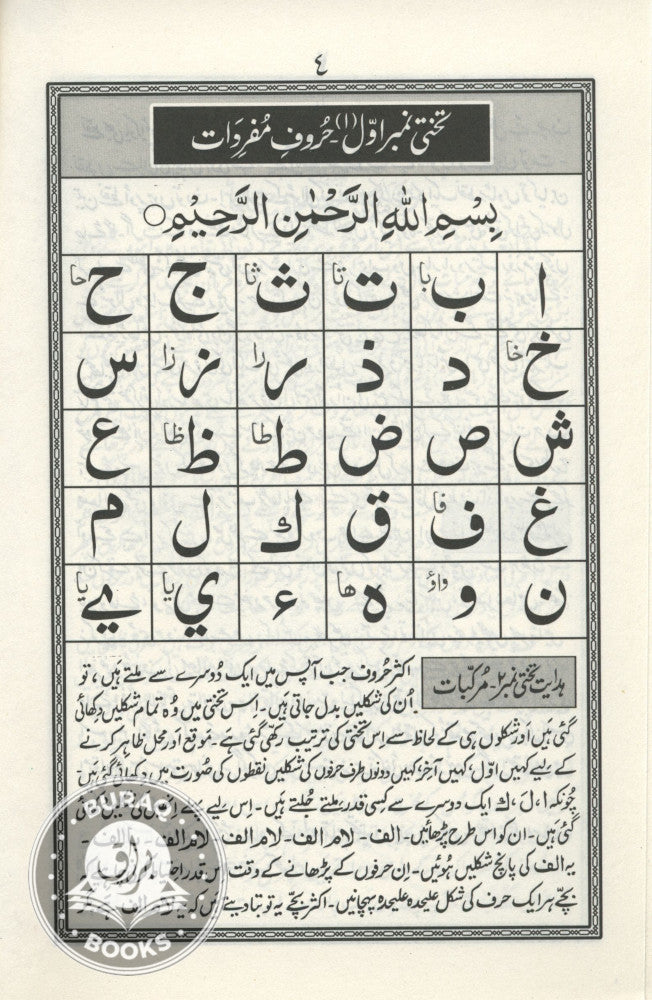 ٤
تختی نمبر اوّل (۱) - حُروفِ مُفرِدَات
بِسْمِ اللهِ الرَّحْمٰنِ الرَّحِيْمِ ○
ا ب با ت تا ث ثا ج ح حا
خ خا د ذ ر را ز زا س
ش ص ض ط طا ظ ظا ع
غ ف فا ق ك ل م
ن و واؤ ه ها ء ي يا ے يا
ہدایت تختی نمبر ۲ - مُرکّبات
اکثر حُروف جب آپس میں ایک دُوسرے سے ملتے ہَیں، تو
اُن کی شکلیں بدل جاتی ہَیں۔ اِس تختی میں وُہ تمام شکلیں دِکھائی
گئی ہَیں اَور شکلوں ہی کے لحاظ سے اِس تختی کی ترتیب رکھی گئی ہے۔ مَوقع اَور محل ظاہر کرنے
کے لِیے کہیں اوّل، کہیں آخر، کہیں دونوں طرف حرفوں کی شکلیں نقطوں کی صُورت میں دِکھائی گئی ہَیں۔
چُونکہ ا، ل، ك ایک دُوسرے سے کِسی قدر مِلتے جُلتے ہَیں۔ اِس لیے پہلے
گئی ہَیں۔ ان کو اس طرح پڑھائیں۔ الف - لام الف - لام الف - لام الف
یہ الف کی پانچ شکلیں ہُوئیں۔ اِن حرفوں کے پڑھانے کے وقت اِس قدر
بچّے ہر ایک حرف کی شکل علیٰحدہ علیٰحدہ پہچانیں۔ اکثر بچّے یہ تو بتا دیتے ہیں کہ یہ لام الف
BURAQ
براق
BOOKS